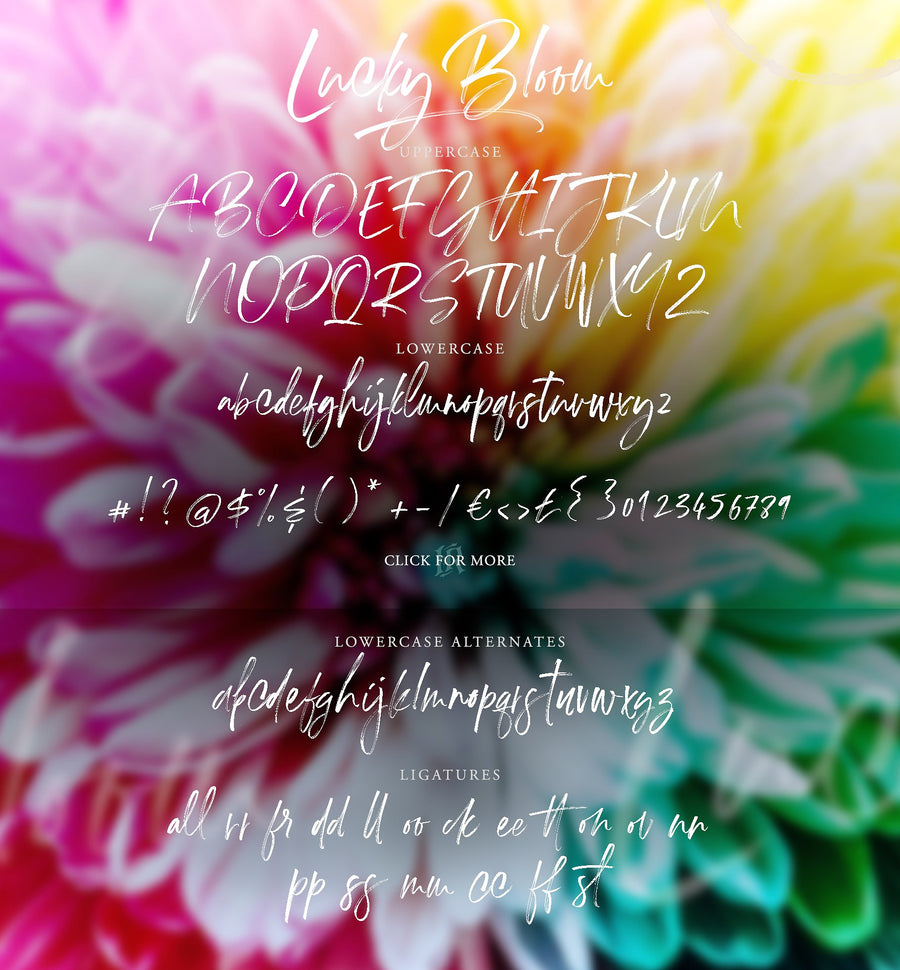 Lucky Bloom
UPPERCASE
ABCDEFGHIJKLM
NOPQRSTUVWXYZ
LOWERCASE
abcdefghijklmnopqrstuvwxyz
#!?@$%&()*+-/€<>£{}0123456789
CLICK FOR MORE
LOWERCASE ALTERNATES
abcdefghijklmnopqrstuvwxyz
LIGATURES
all rr fr dd ll oo ck ee tt on or nn
pp ss mm cc ff st